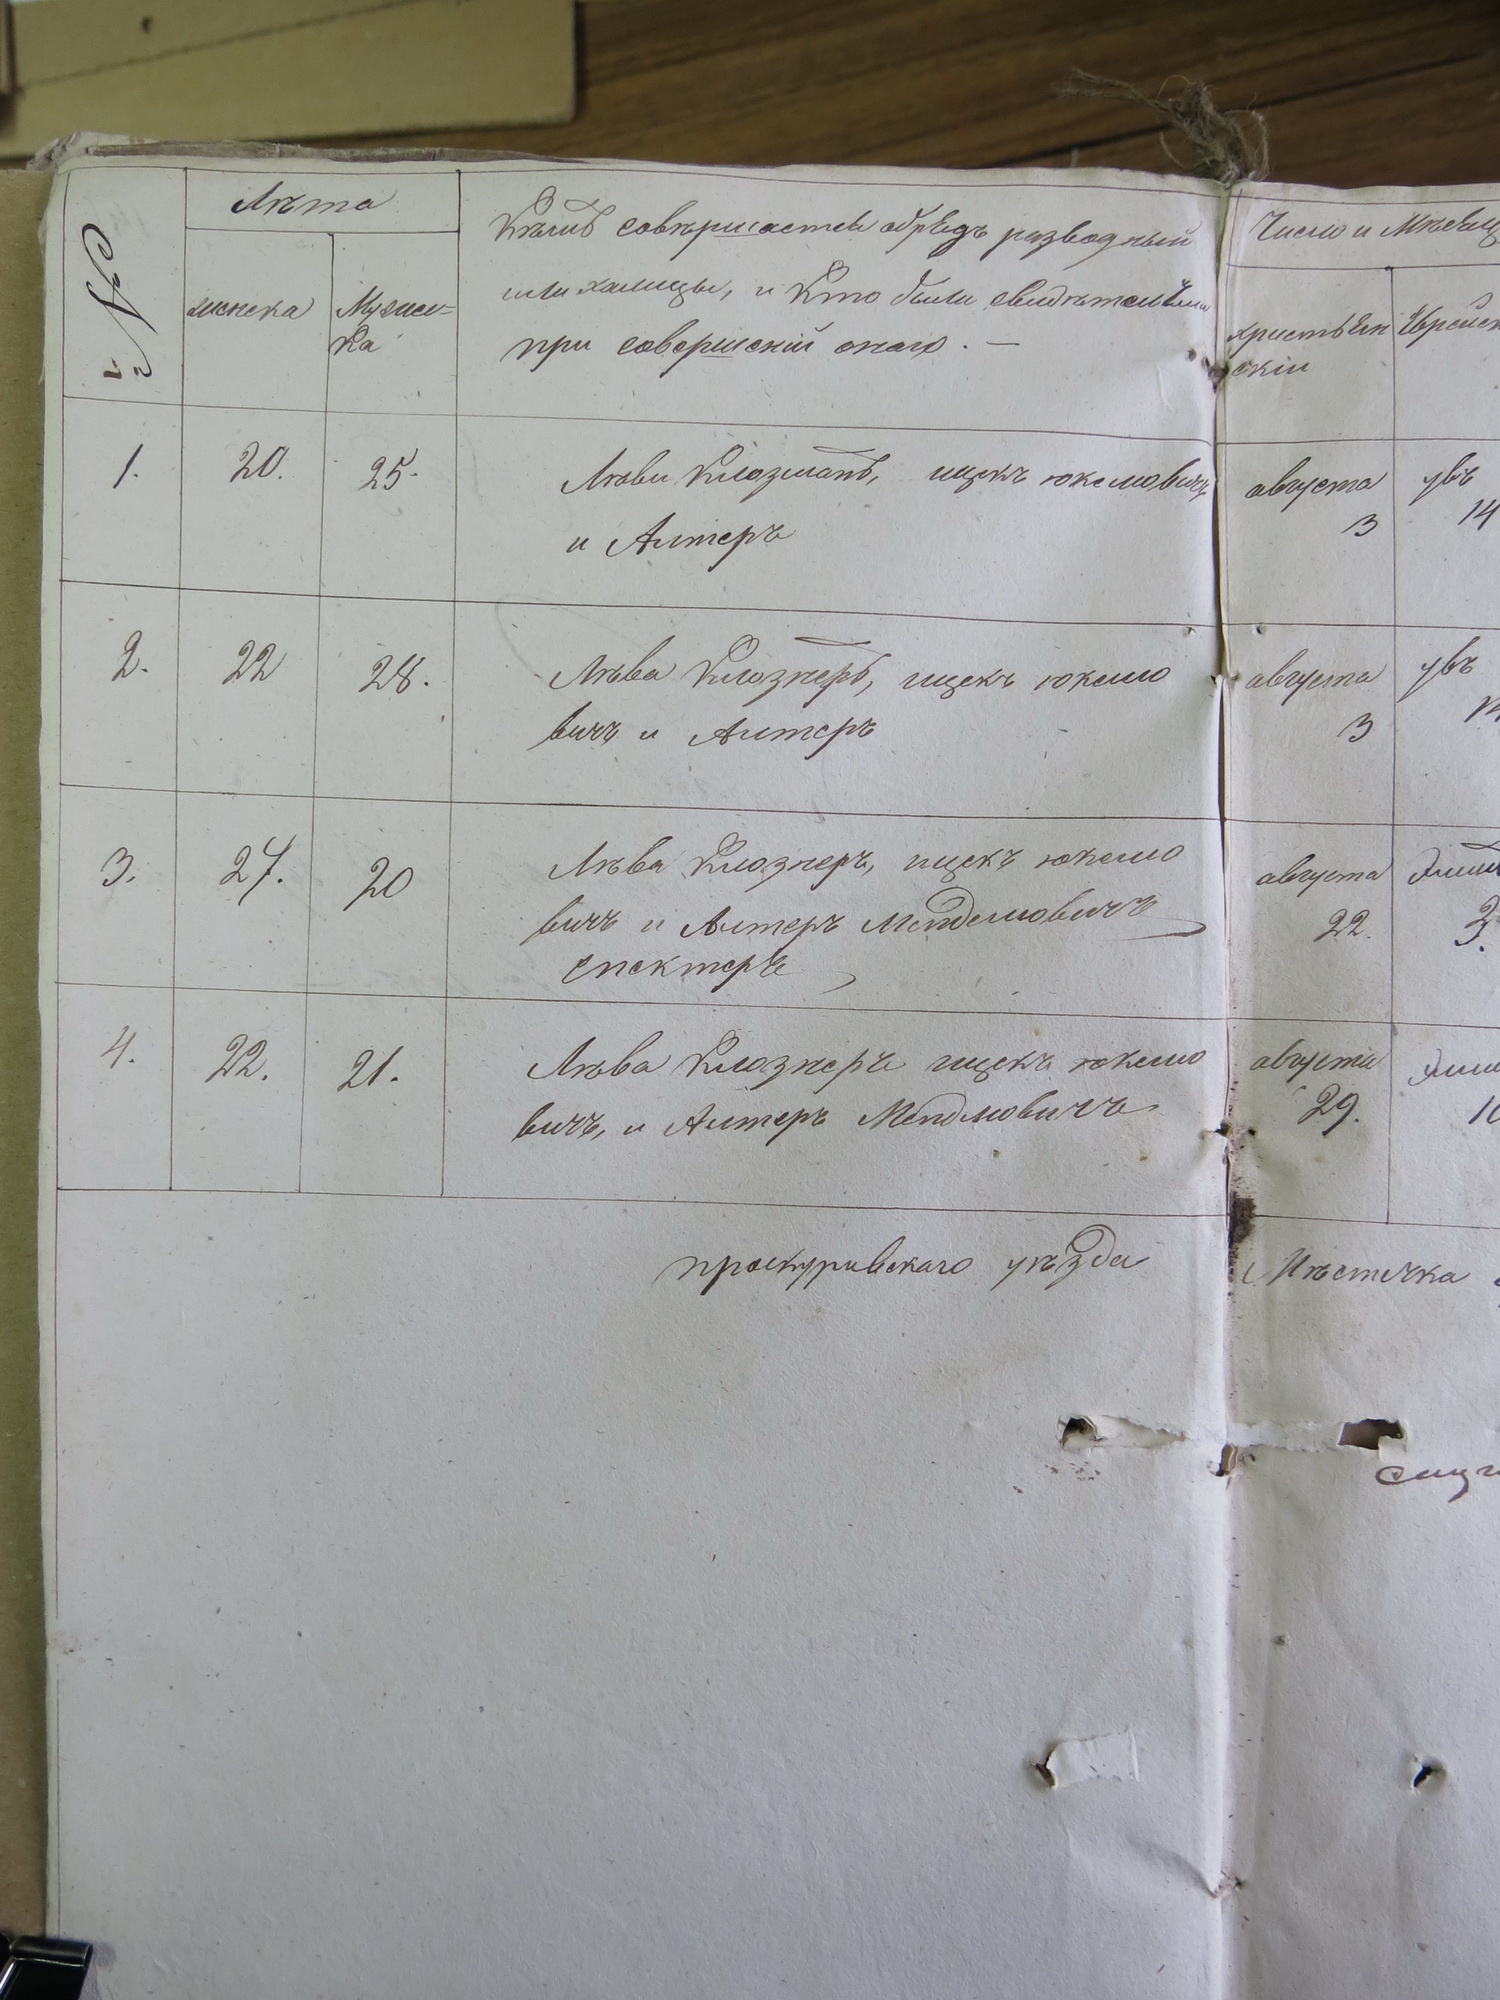 №
Лѣта
Кѣмъ совершается обрядъ разводный
Число и Мѣсяц
женска
Мужес-
ка
или халицы, и кто были свидѣтелями
при совершеніи онаго. —
христьян
скій
Еврейск
1.
20.
25.
Лѣви Клозманъ, ицекъ юкеловичъ
и Алтеръ
августа
3
увъ
14
2.
22
28.
Лѣва Клознеръ, ицекъ юкело
вичъ и Алтеръ
августа
3
увъ
14
3.
27.
20
Лѣва Клознеръ, ицекъ юкело
вичъ и Алтеръ Менделовичъ
спекторъ
августа
22.
3.
4.
22.
21.
Лѣва Клознеръ ицекъ юкело
вичъ, и Алтеръ Менделовичъ
августа
29.
10
проскуривскаго уѣзда
Мѣстечка